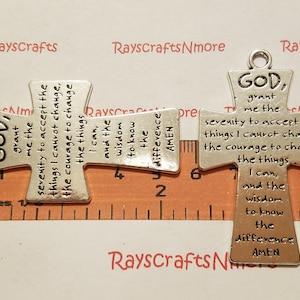 RayscraftsNmore
RayscraftsNmore
GOD,
grant
me the
serenity to accept the
things I cannot change,
the courage to change
the things
I can,
and the
wisdom
to know
the
difference
AMEN
GOD,
grant
me the
serenity to accept
things I cannot change
the courage to change
the things
I can,
and the
wisdom
to know
the
difference
AMEN
4
5
6
7
2
RaysCraftsNmore